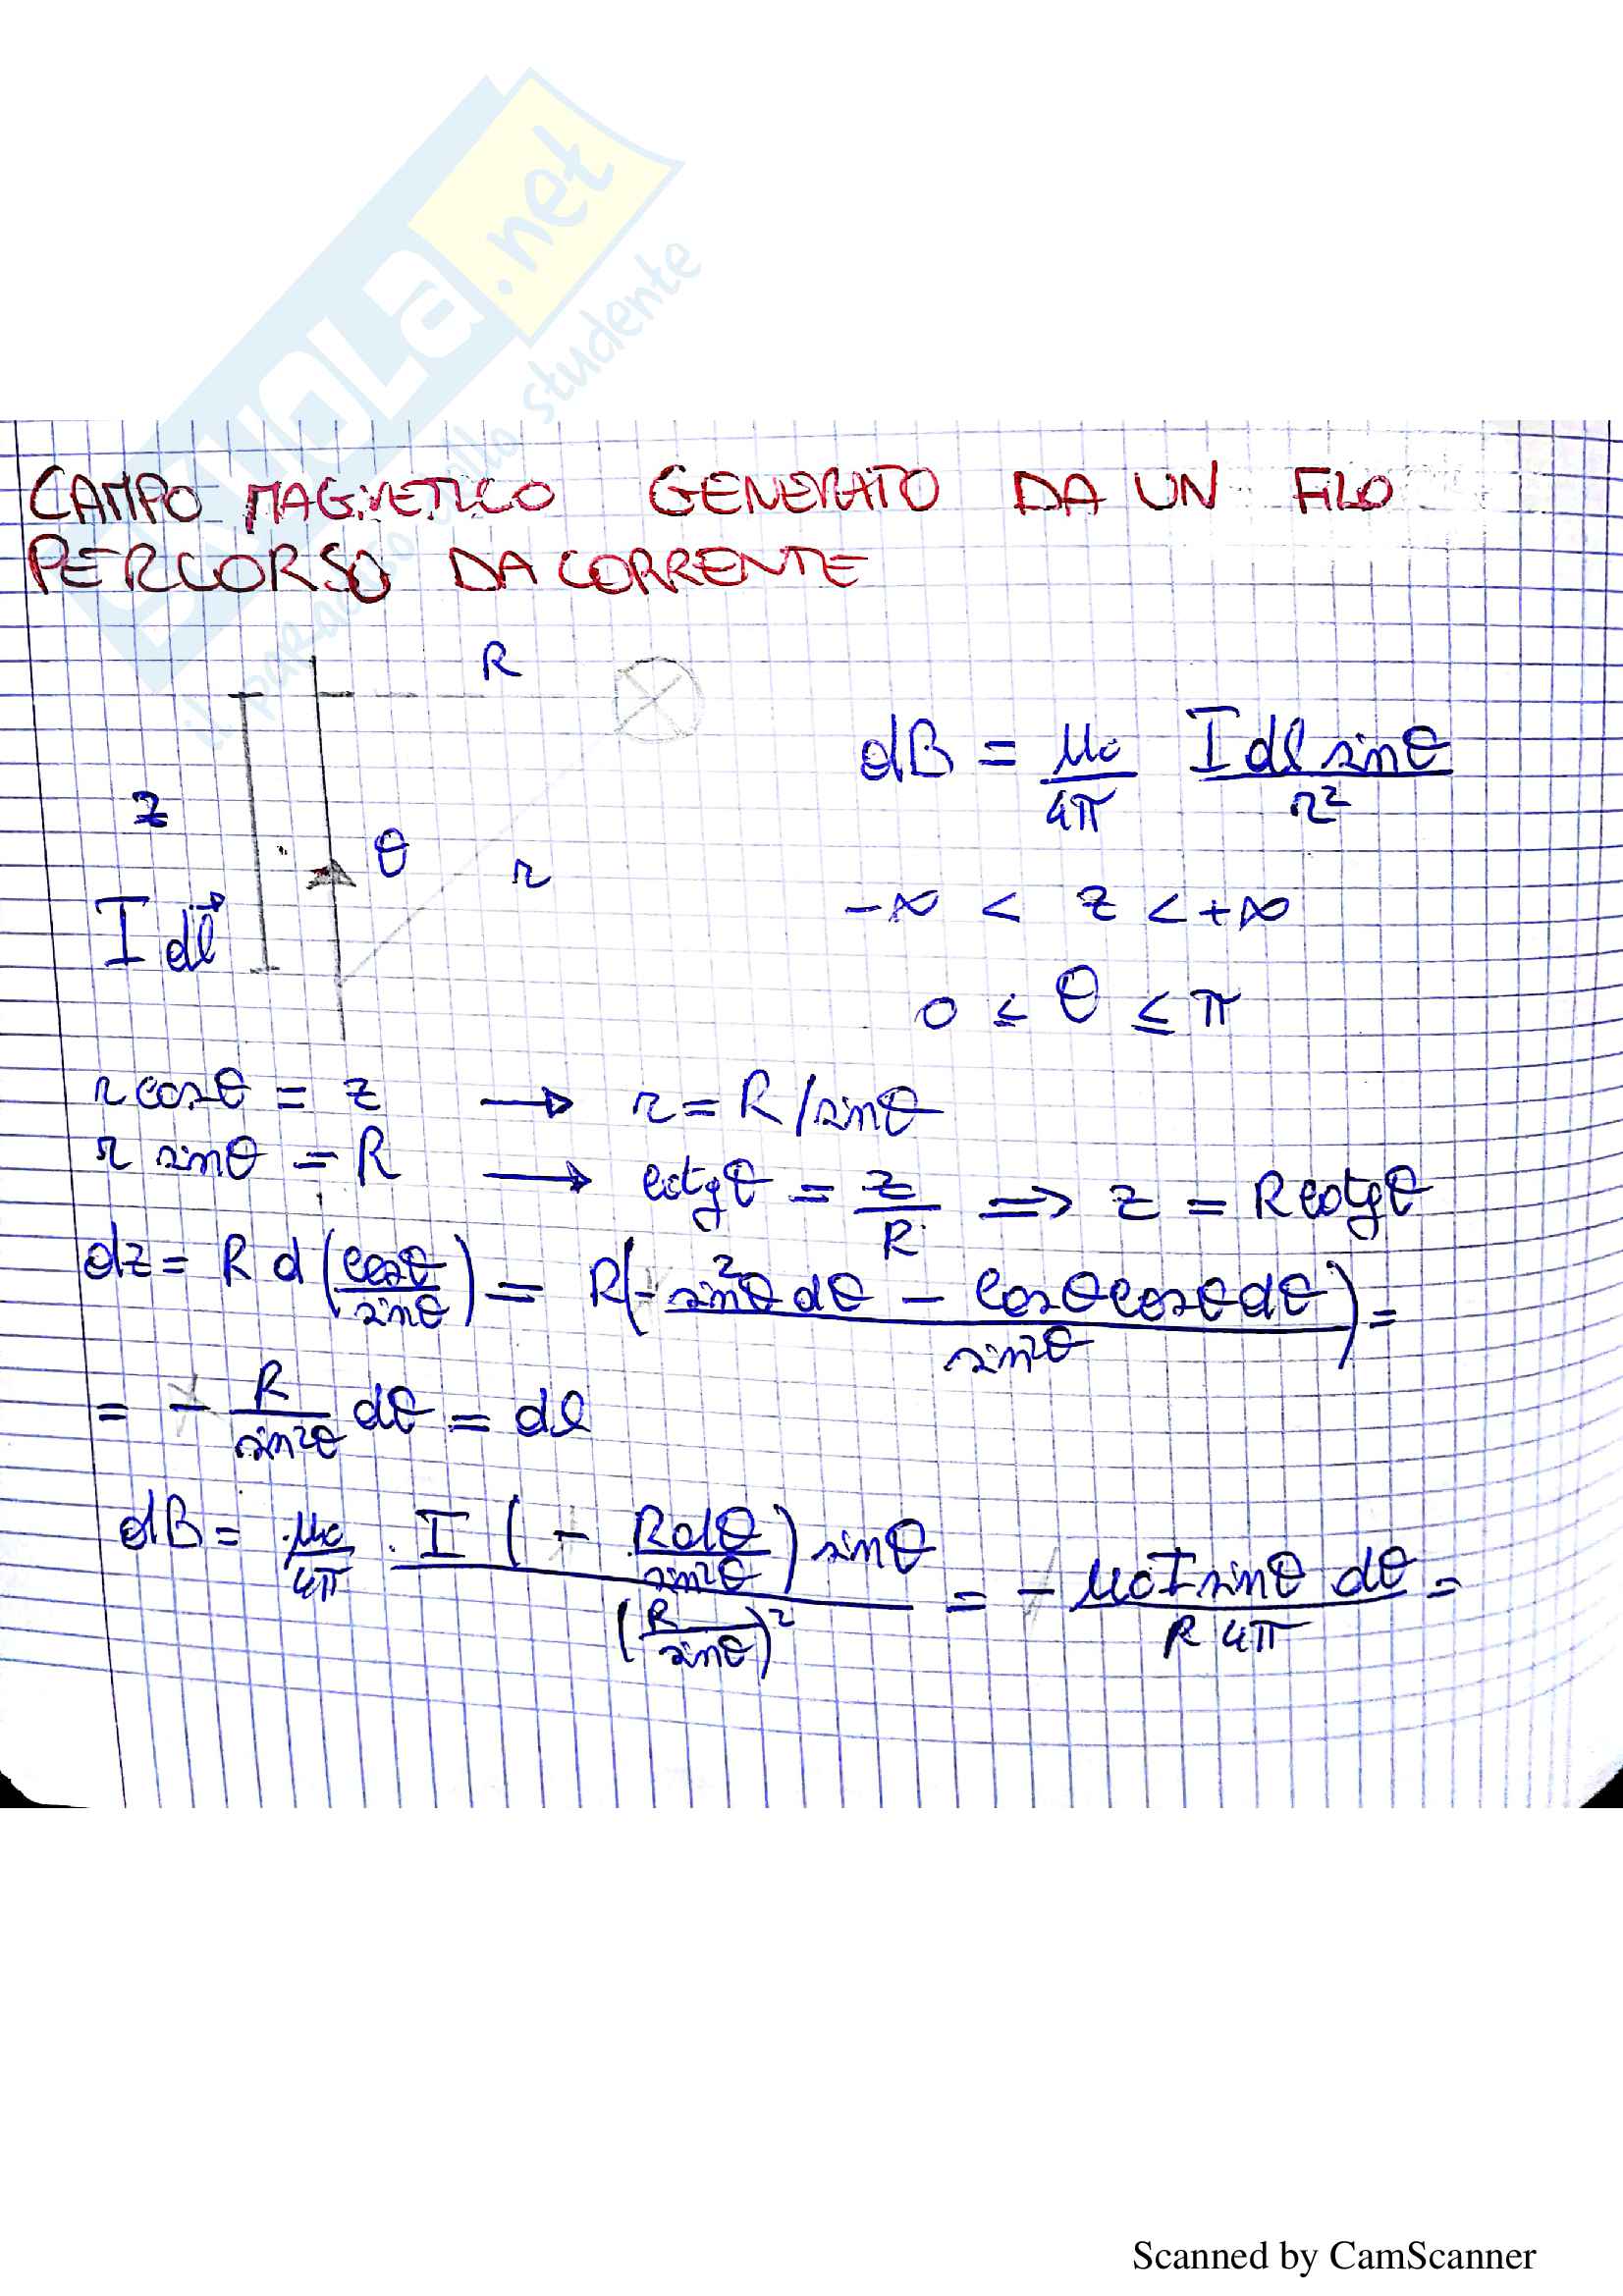 SKUOLa.net
il paradiso dello studente
CAMPO MAGNETICO GENERATO DA UN FILO
PERCORSO DA CORRENTE
R
z
θ
r
I dl⃗
dB = μ₀/4π I dl sinθ/r²
-∞ < z < +∞
0 ≤ θ ≤ π
r cosθ = z → r = R/sinθ
r sinθ = R → cotgθ = z/R ⇒ z = R cotgθ
dz = R d(cosθ/sinθ) = R(- sin²θ dθ - cosθ cosθ dθ/sin²θ) =
= - R/sin²θ dθ = dl
dB = μ₀/4π · I (- R dθ/sin²θ) sinθ/(R/sinθ)² = - μ₀ I sinθ dθ/R 4π =
Scanned by CamScanner